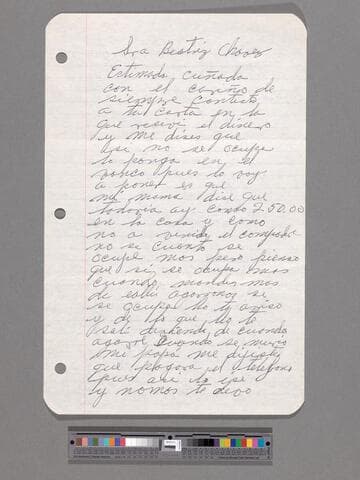 Sra Beatriz Chavez
Estimada cuñada
con el cariño de
siempre contesto
a tu carta en la
que recivi el dinero
y me dises que
si no se ocupa
lo ponga en el
banco pues lo voy
a poner es que
mi mama dise que
todavia ay como 250.00
en la casa y como
no a venido el comprador
no se cuanto se
ocupe mas pero pienso
que si, se ocupa mas
cuando mandes mas
de estos
se ocupa yo te aviso
y de lo que yo te
sali deviendo de cuando
cuando se murio
mi papa me dijistes
que pagara el telefono
pues asi lo ise
y nomas te devo